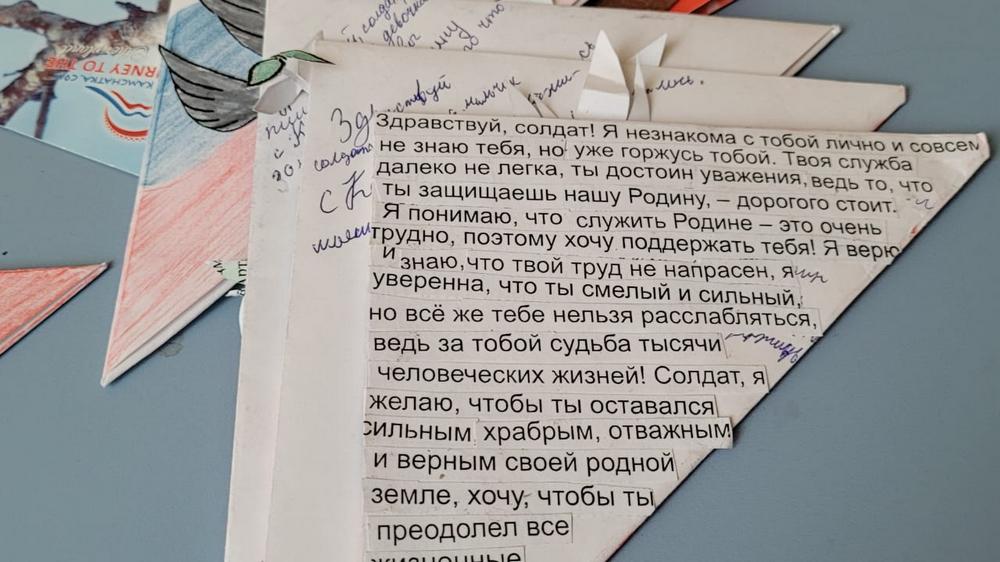 KAMCHATKA.CO
RNEY TO THE
солда
девочка
что
Здравствуй, солдат! Я незнакома с тобой лично и совсем
не знаю тебя, но уже горжусь тобой. Твоя служба
далеко не легка, ты достоин уважения, ведь то, что
ты защищаешь нашу Родину, – дорогого стоит.
Я понимаю, что служить Родине – это очень
трудно, поэтому хочу поддержать тебя! Я верю
и знаю,что твой труд не напрасен, я
уверенна, что ты смелый и сильный,
но всё же тебе нельзя расслабляться,
ведь за тобой судьба тысячи
человеческих жизней! Солдат, я
желаю, чтобы ты оставался
сильным храбрым, отважным
и верным своей родной
земле, хочу, чтобы ты
преодолел все
жизненные